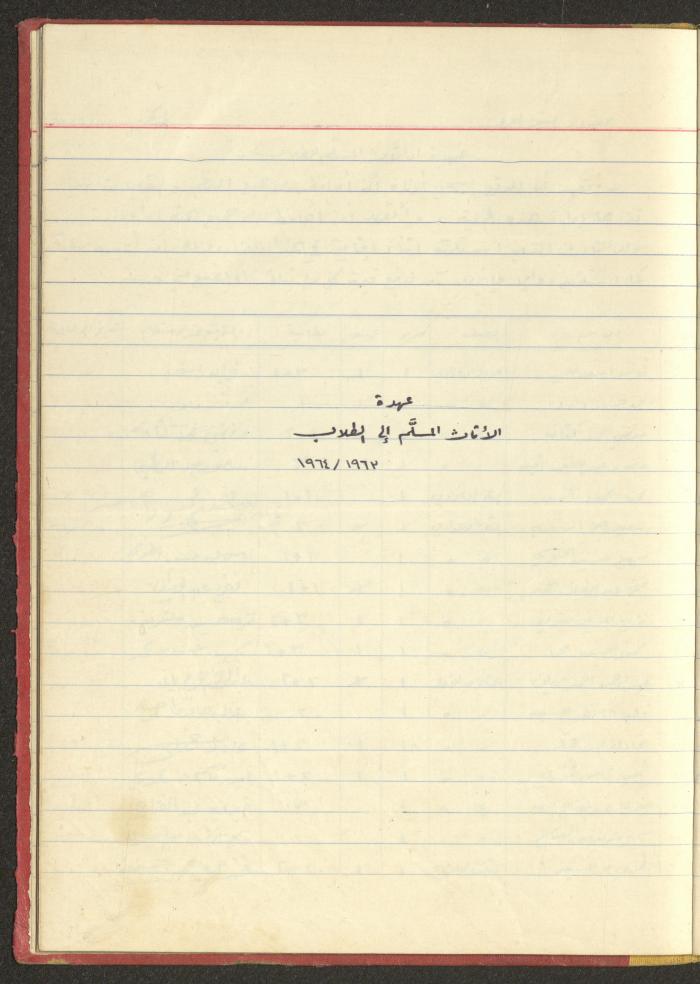 عهدة
الأثاث المسلَّم إلى الطلاب
١٩٦٣/١٩٦٤